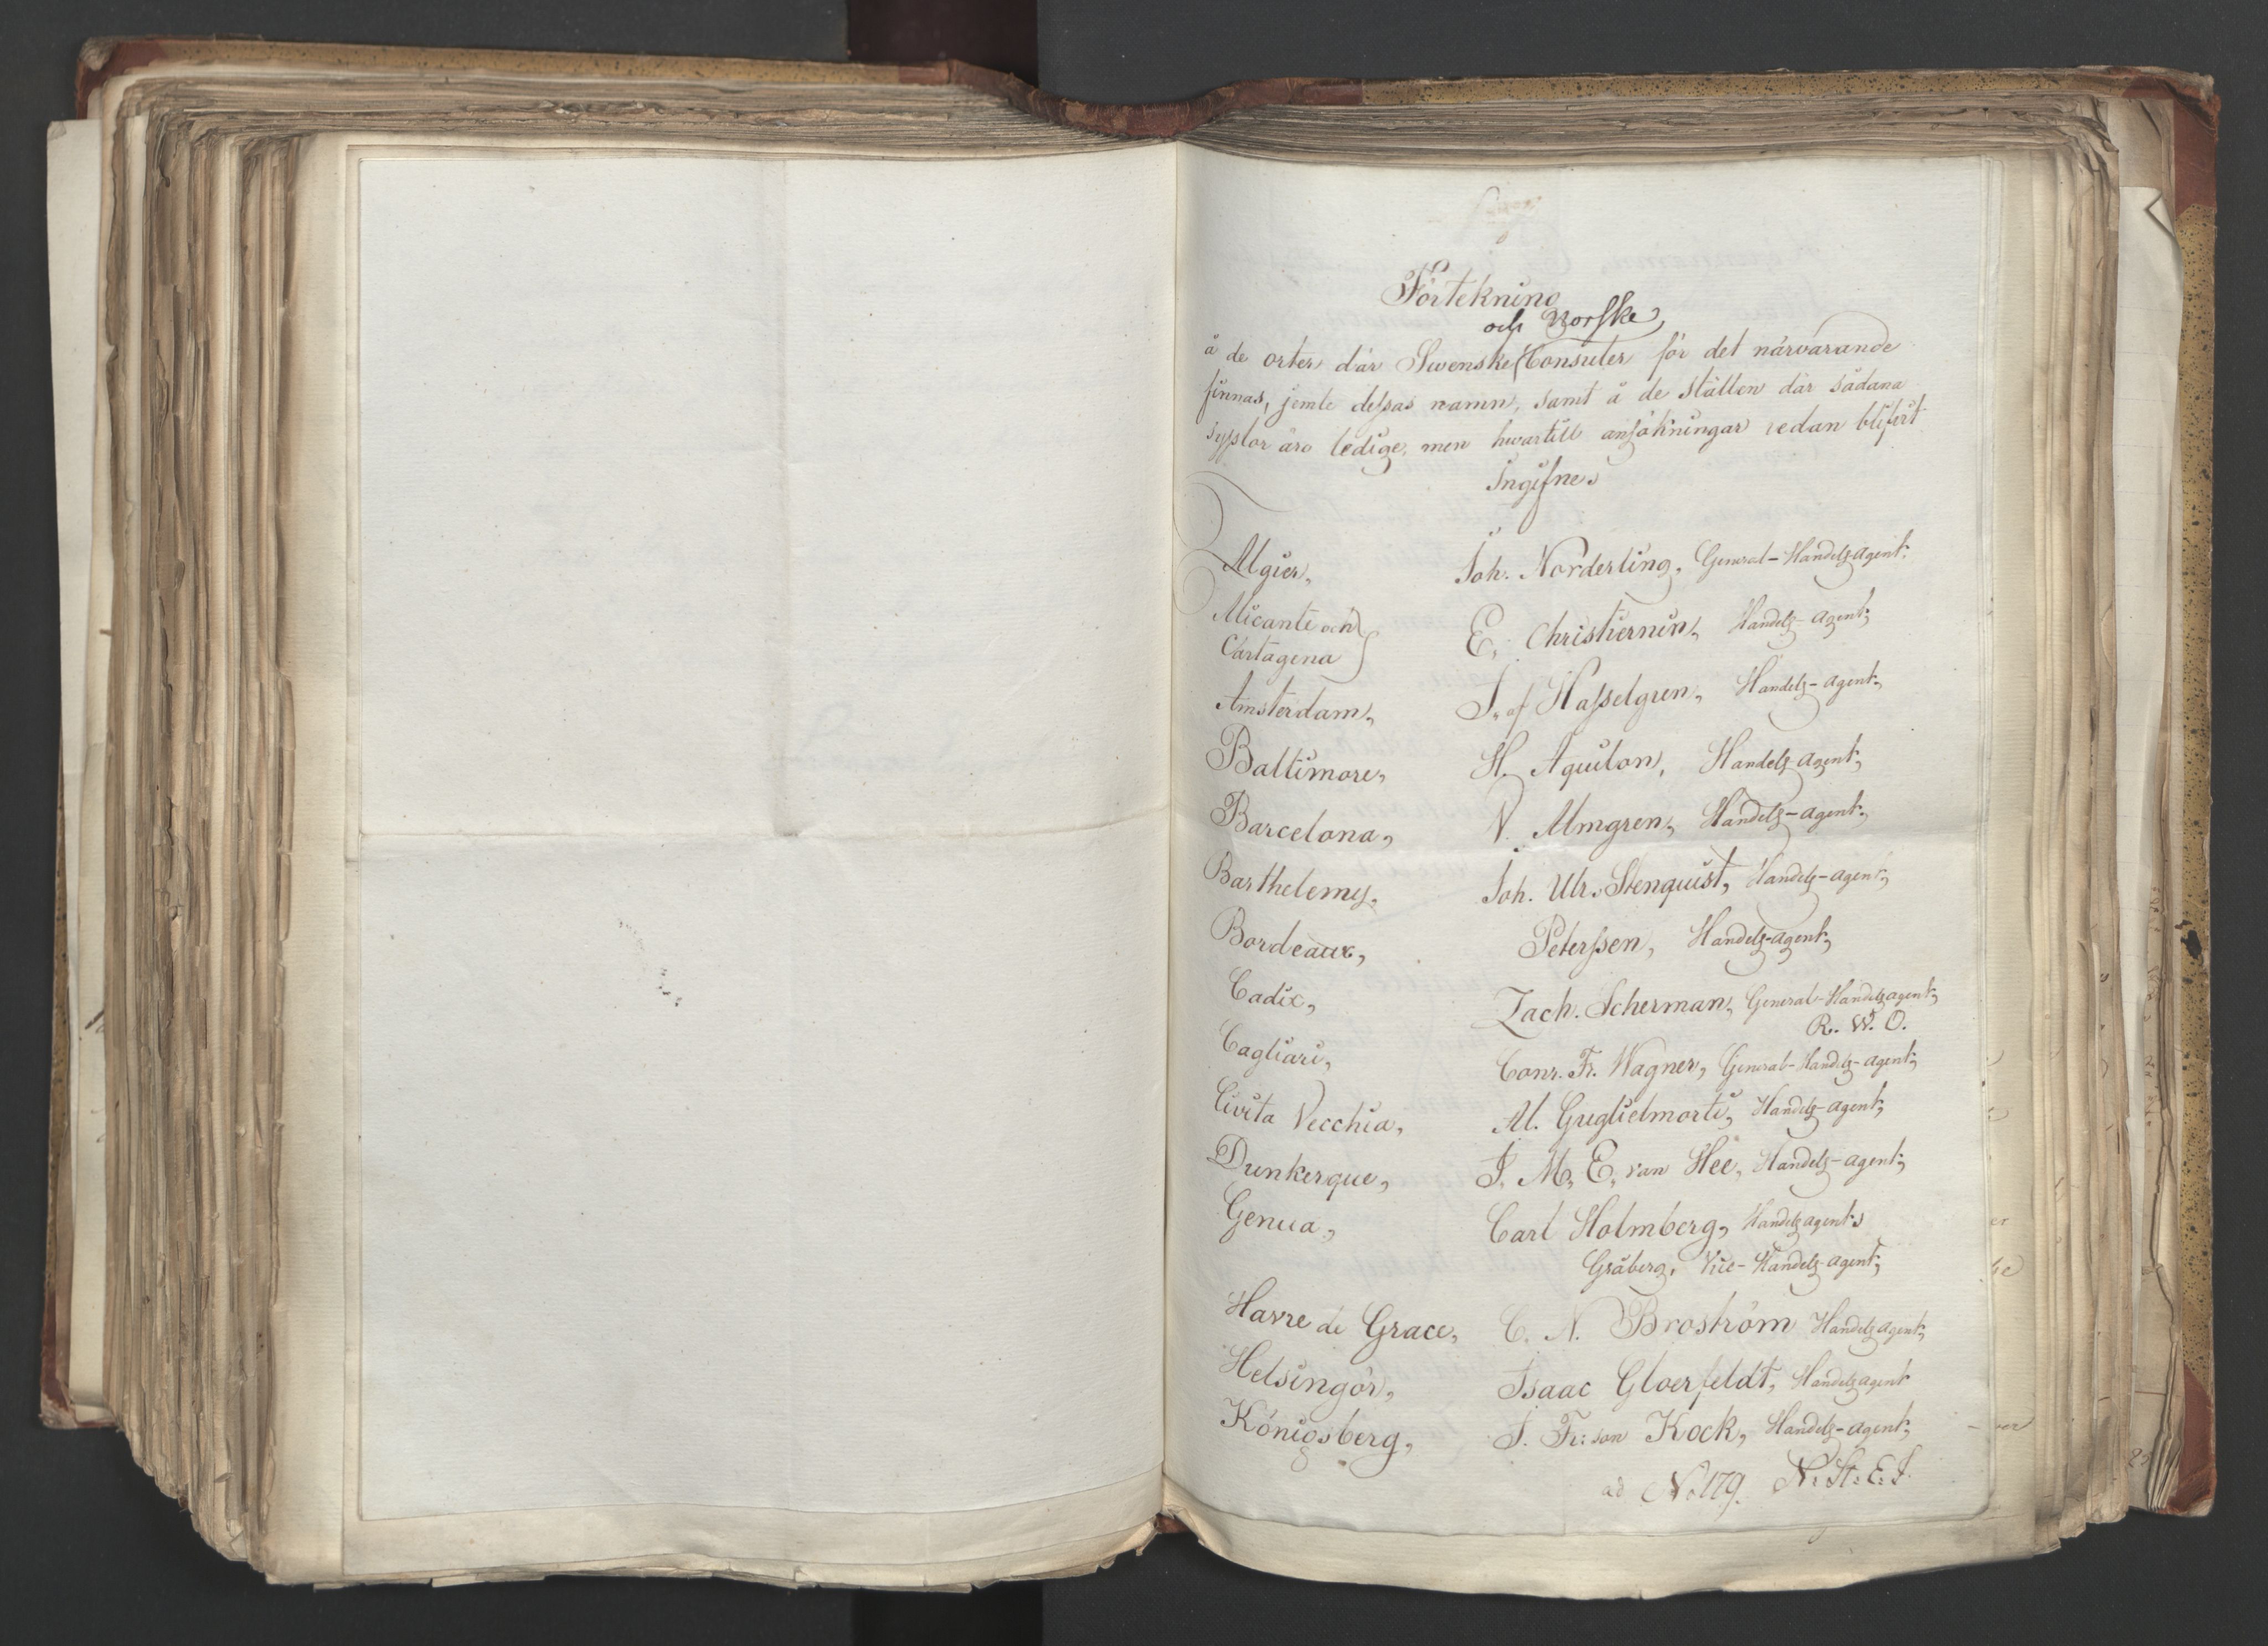 Förtekning
och Norske
å de orter där Swenske Consuler för det närvarande
finnas, jemte dessas namn, samt å de ställen där sådana
sysslor äro ledige, men hwartill ansökningar redan blifvit
Ingifne.
Algier, Joh. Norderling, General-Handels agent,
Alicante och
Cartagena } E. Christiernin, Handels-agent,
Amsterdam, J. af Hasselgren, Handels-agent,
Baltimore, H. Aquilon, Handels-agent,
Barcelona, V. Almgren, Handels-agent,
Barthelemy, Joh. Ulr. Stenquist, Handels-agent,
Bordeaux, Peterssen, Handels-agent,
Cadix, Zach. Scherman, General-Handels agent,
R. W. O.
Cagliari, Conr. Fr. Wagner, General-Handels-agent,
Civita Vecchia, Al. Guglielmotti, Handels-agent,
Dunkerque, J. M. E. van Hee, Handels-agent,
Genua, Carl Holmberg, Handels agent,
Gråberg, Vice-Handels-agent,
Havre de Grace, C. N. Broström Handels agent,
Helsingör, Isaac Gloerfeldt, Handels agent
Königsberg, J. Fr: son Kock, Handels-agent,
ad No 179. N: St: E: J.